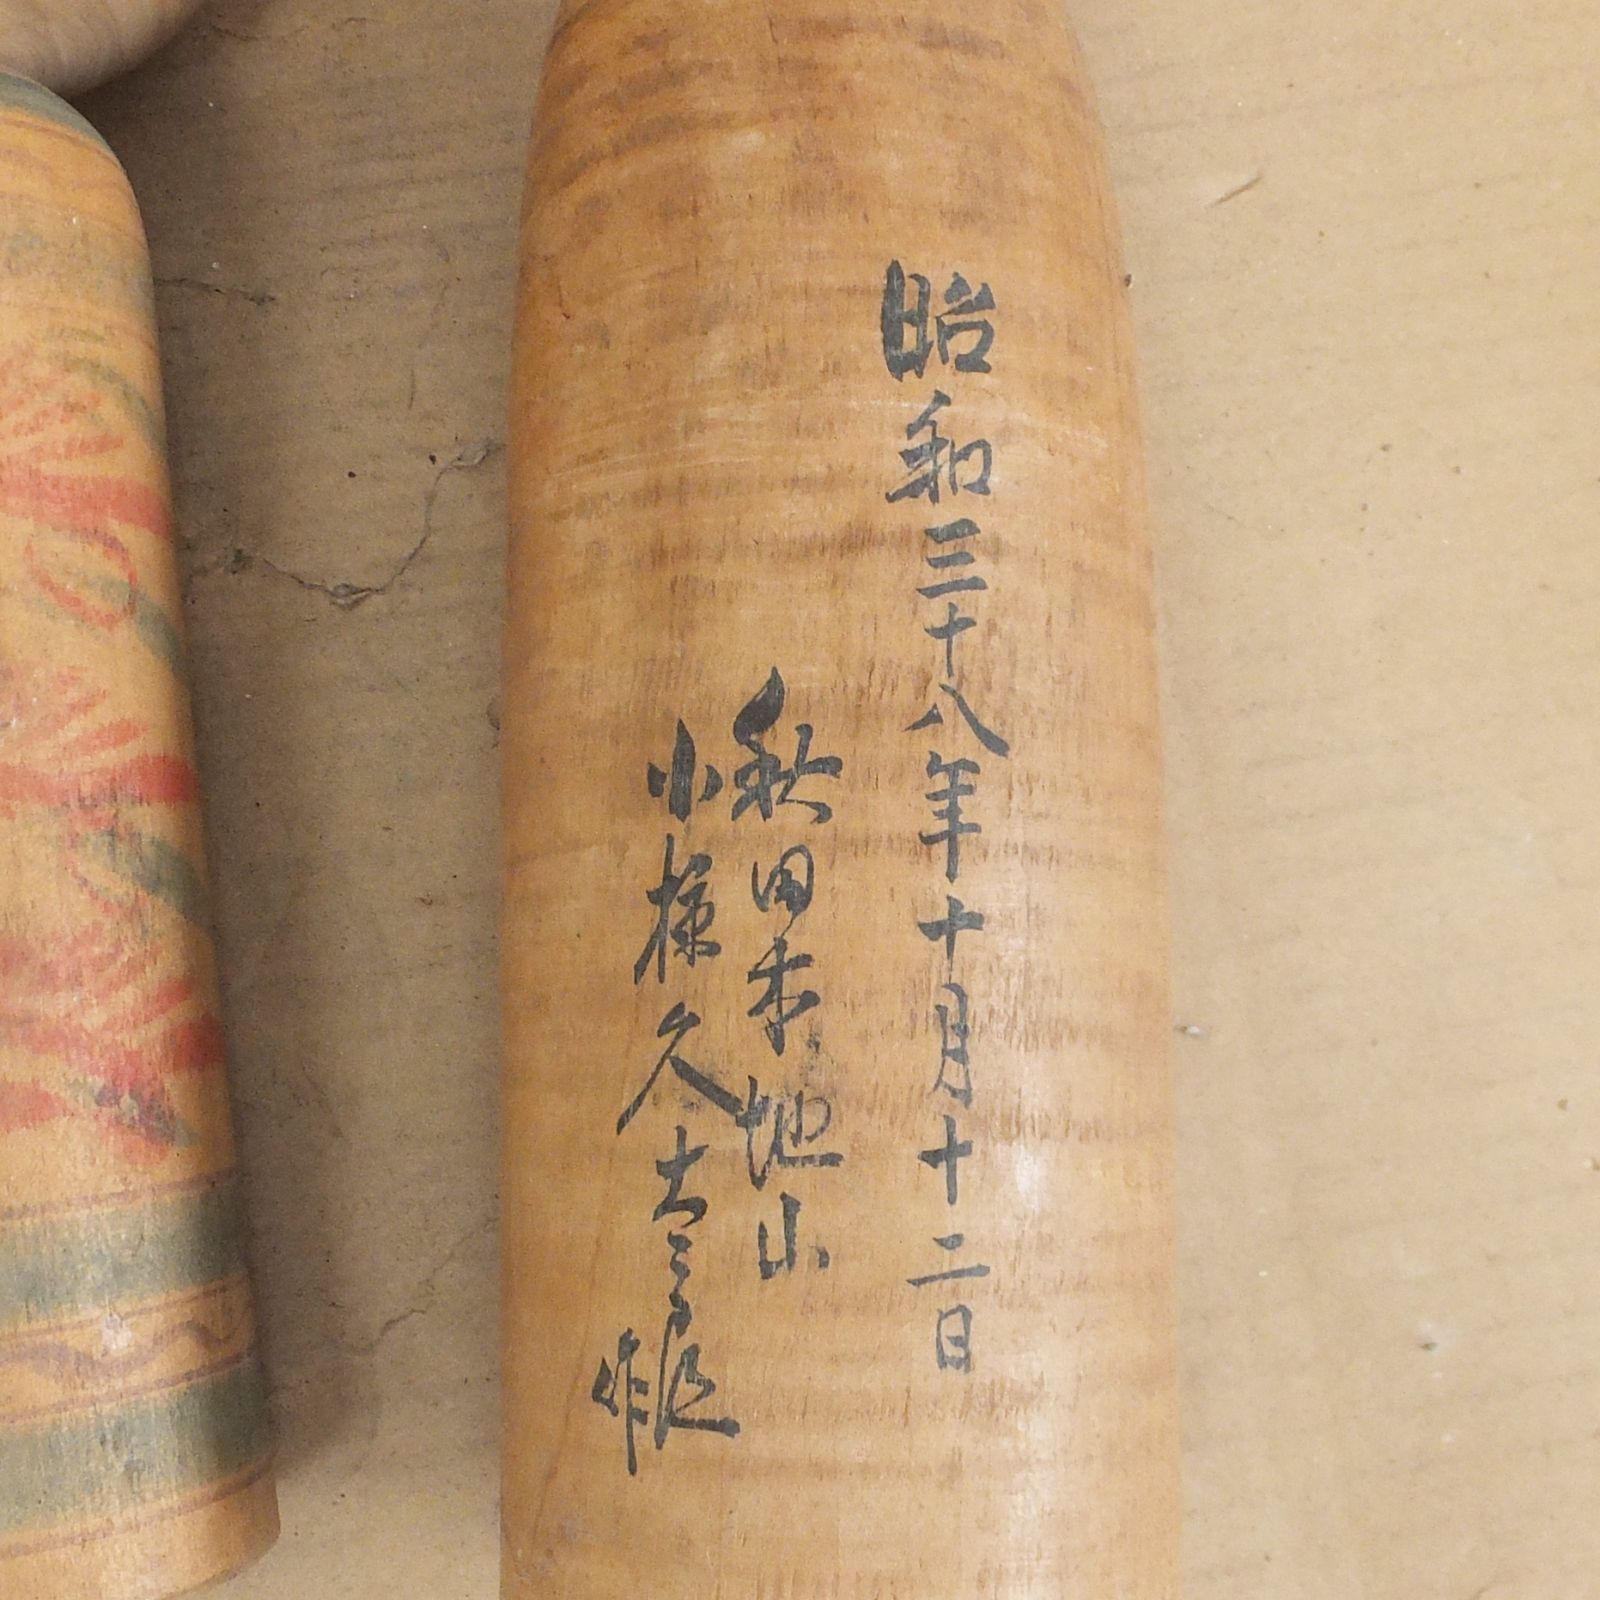 昭和三十八年十月十二日
秋田木地山
小椋久太郎作